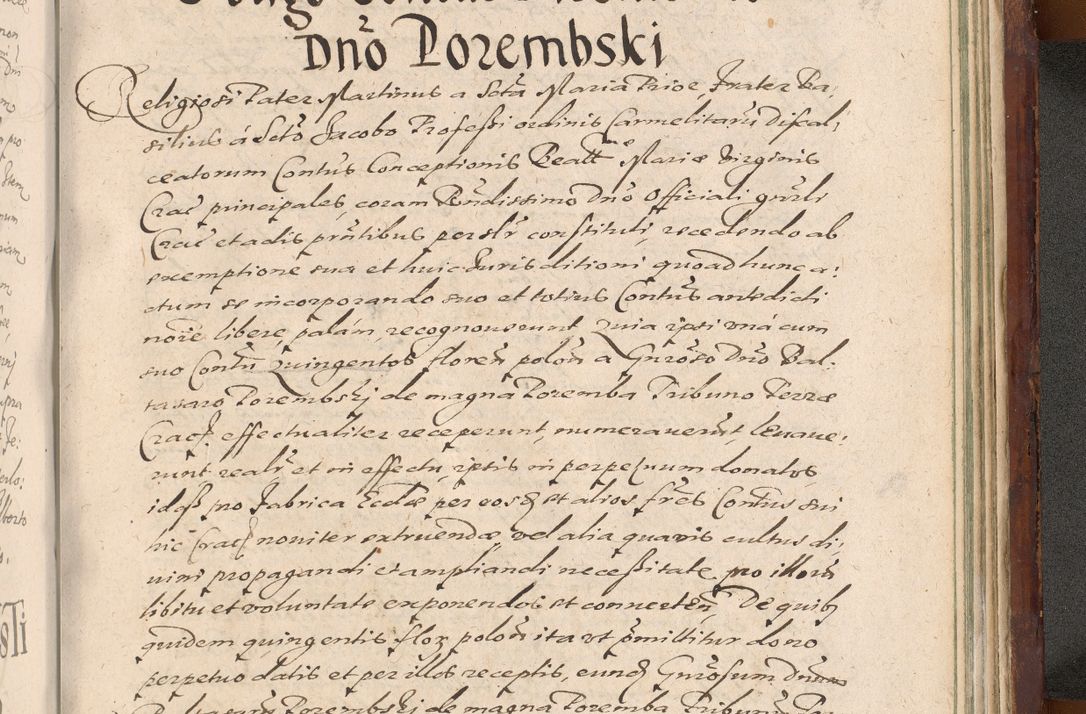 Dnõ Porembski
Religiosi Pater Martinus a Sctã Maria Prior, Frater Ba,
silius á Sctõ Jacobo Professi ordinis Carmelitarũ Discal,
ceatorum Contũs Conceptionis Beatt Mariæ Virginis
Crac principales, coram Rñdissimo Dnõ Officiali gñrli
Crac et actis prñtibus persłr constituti, recedendo ab
exemptione sua et huic Jurisditioni quoad hunc a,
ctum se incorporando suo et totius Contũs antedicti
noiẽ libere, palám, recognouerunt, Quia ipsi vná cum
suo Contũ Quingentos florẽñ polõñ a Gñrõso Dnõ Bal,
tasaro Porembski de magna Poremba Tribuno Terræ
Crac effectualiter receperunt, numerauerũt, leuaue,
runt realr et in effectu, ipsis in perpetuum donatos
idqз pro Fabrica Ecclæ per eosdз et alios frẽs Contũs sui
hic Crac nouiter extruendæ, vel alia quauis cultus di,
uini propagandi et ampliandi necessitate, pro illorũ
libitu et voluntate exponendos et conuerteñ, De quibз
quidem quingentis flor polõñ ita vt p̃mittitur dono
perpetuo datis et per illos receptis, eundз Gñrõsum Dñum
Porembski de magna Poremba Tribunũ